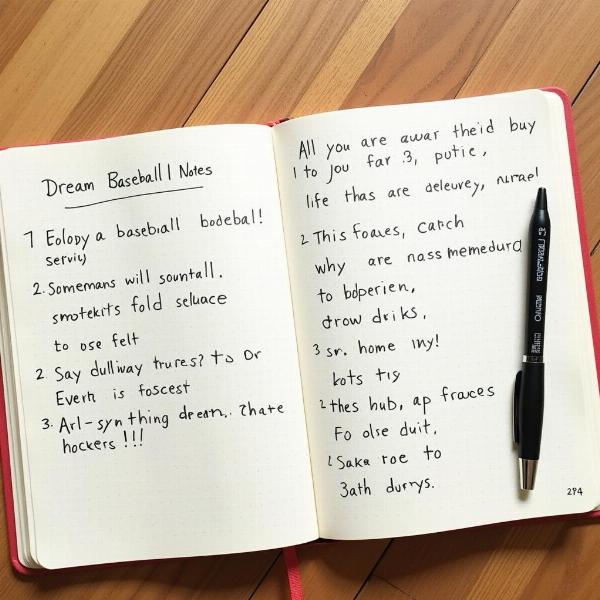 Dream Baseball | Notes
1 Eolopy a baseball bodebal!
serviy
2. Somemans will sountall.
smotekits fold seluace
to ose felt
2. Say dulliway trures? to Or
Everh is foscest
3. Arl-synthing drean.. Zhate
hockers !!!
All you are awar the'id buy
1 to jou far 3, putic,
life thas are deleurey, nurael
2 This foaxes, carch
why are nass memedurd
to bopperien,
drow driks,
3 sr. home iny!
kots tis
2 thes hub, ap fraces
Fo olse duit,
2 Saka roe to
3ath durrys.
294